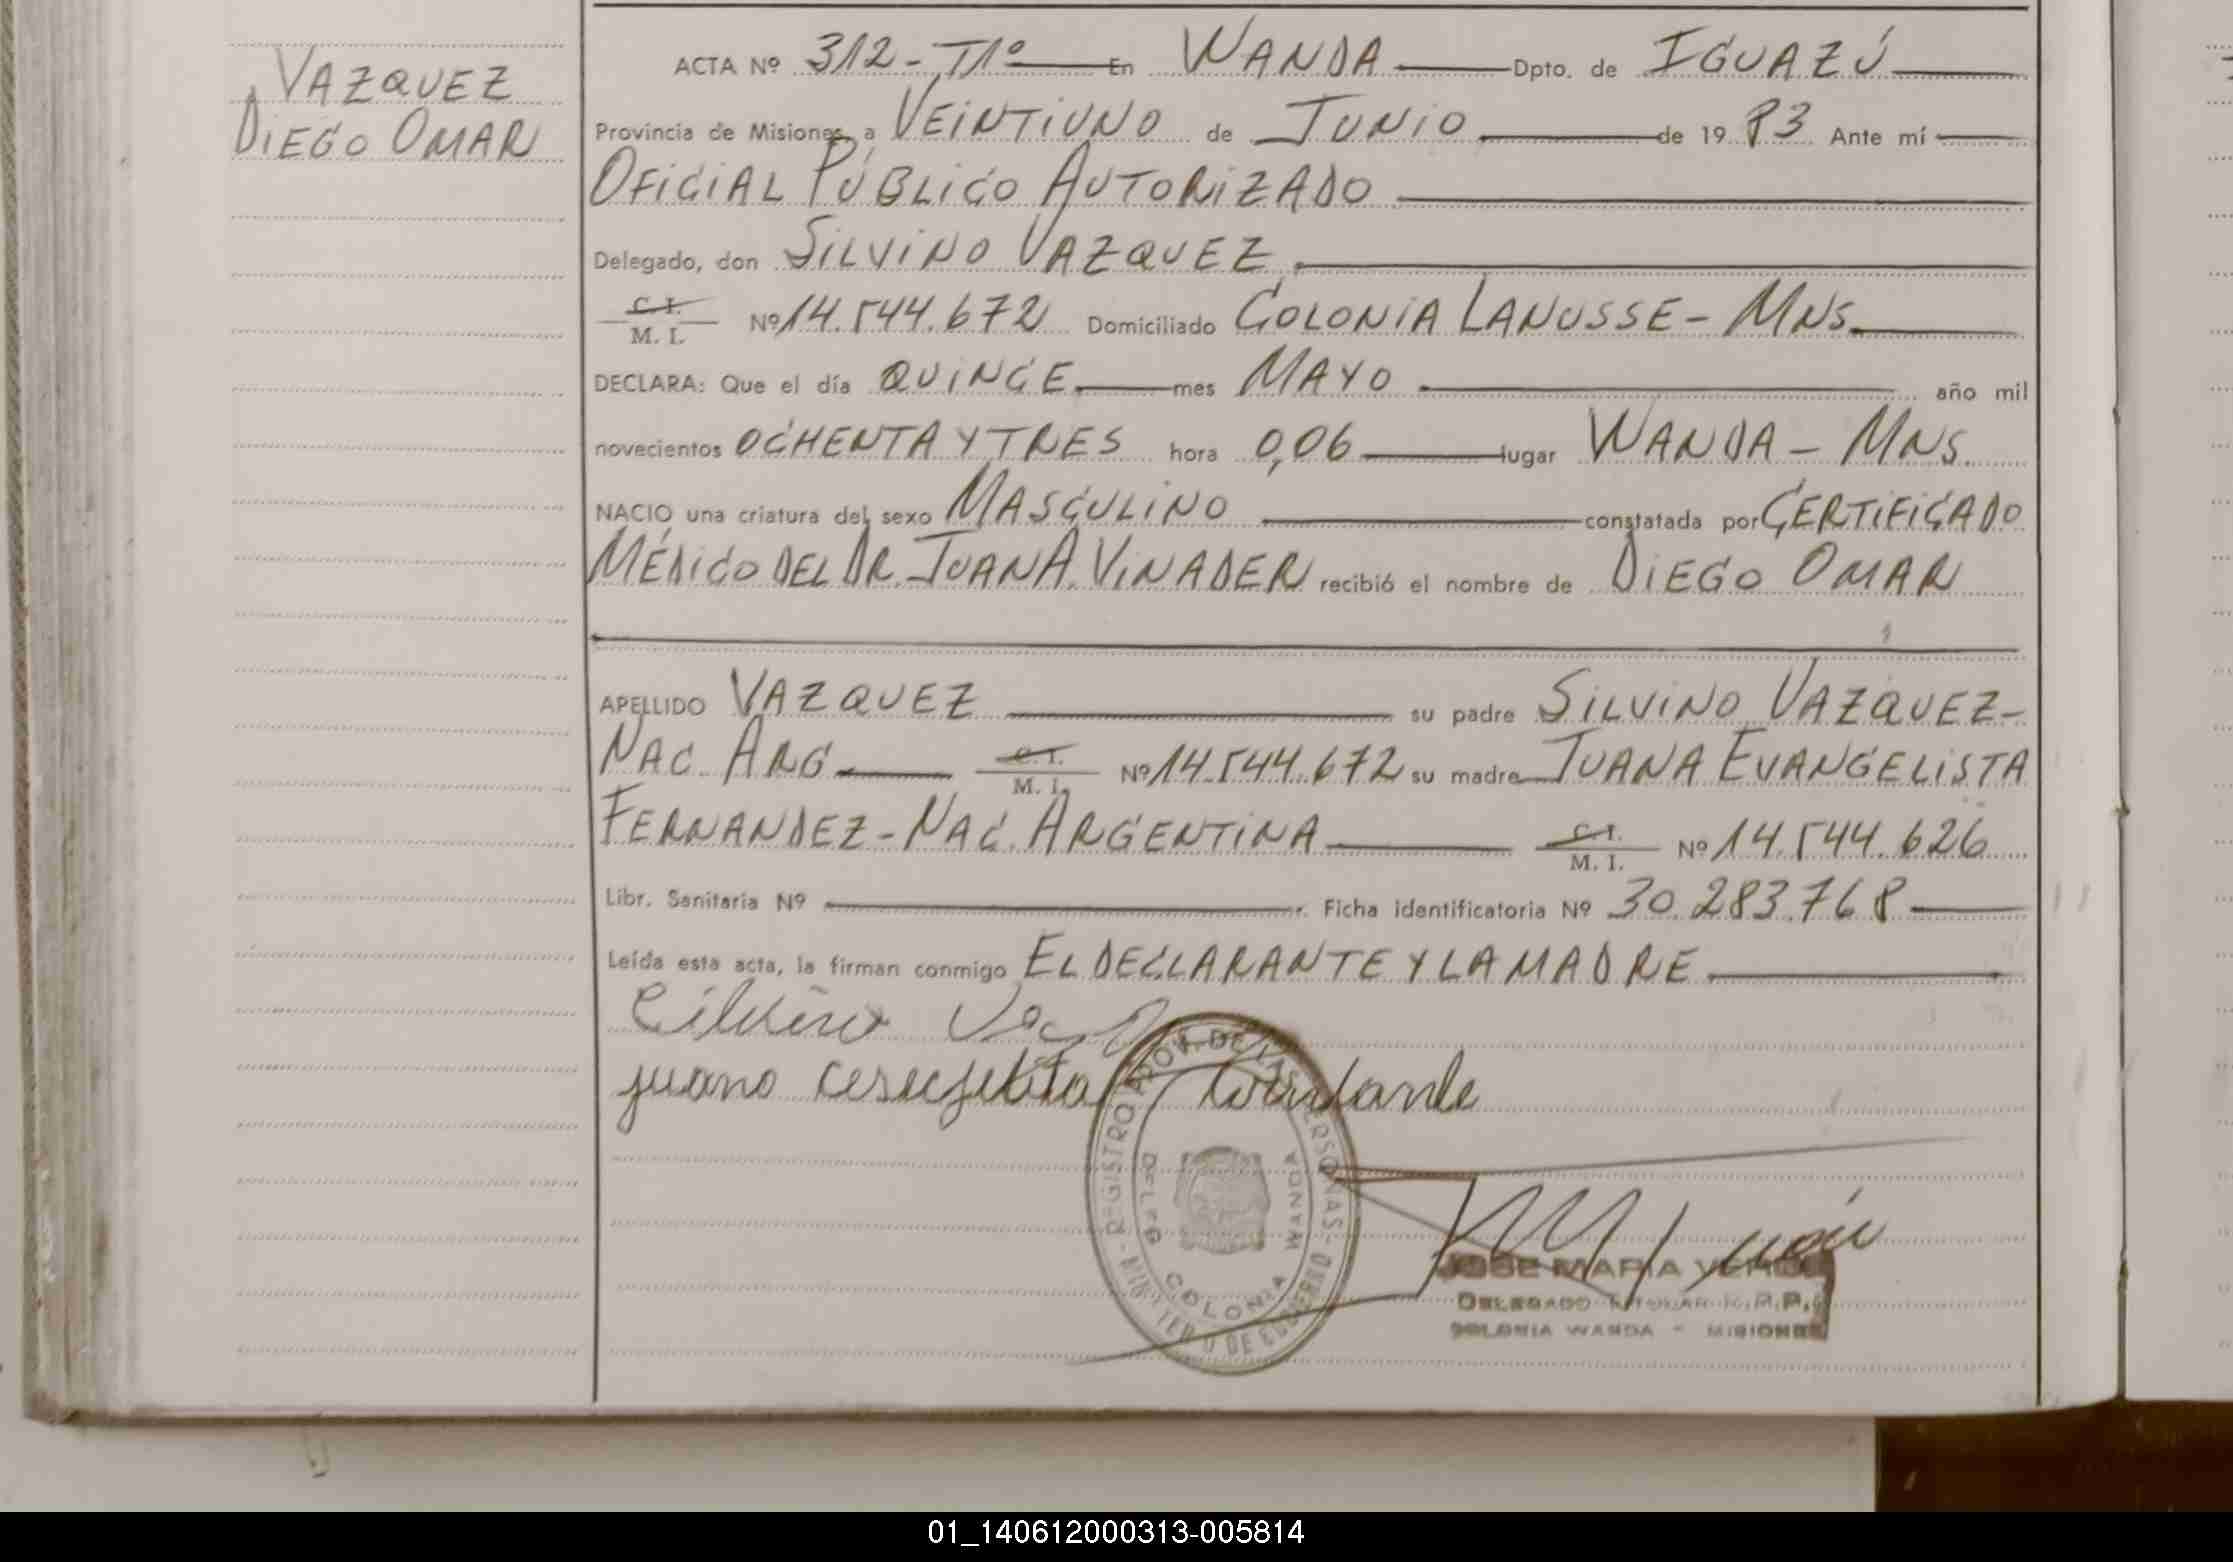 VAZQUEZ
DIEGO OMAR
ACTA Nº 312-T1º En WANDA Dpto. de IGUAZÚ
Provincia de Misiones, a VEINTIUNO de JUNIO de 19 83 Ante mí
OFICIAL PÚBLICO AUTORIZADO
Delegado, don SILVINO VAZQUEZ
C. I.
M. I. Nº 14.544.672 Domiciliado COLONIA LANUSSE - MNS.
DECLARA: Que el día QUINCE mes MAYO año mil
novecientos OCHENTA Y TRES hora 0,06 lugar WANDA - MNS.
NACIO una criatura del sexo MASCULINO constatada por CERTIFICADO
MÉDICO DEL DR. JUAN A. VINADER recibió el nombre de DIEGO OMAR
APELLIDO VAZQUEZ su padre SILVINO VAZQUEZ-
NAC. ARG. C. I. M. I. Nº 14.544.672 su madre JUANA EVANGELISTA
FERNANDEZ - NAC. ARGENTINA C. I. M. I. Nº 14.544.626
Libr. Sanitaria Nº Ficha identificatoria Nº 30.283.768
Leída esta acta, la firman conmigo EL DECLARANTE Y LA MADRE
juana
REGISTRO PROV. DE LAS PERSONAS - MINISTERIO DE GOBIERNO
DELEG. COLONIA WANDA
JOSE MARIA
DELEGADO TITULAR R.P.P.
COLONIA WANDA - MISIONES
01_140612000313-005814